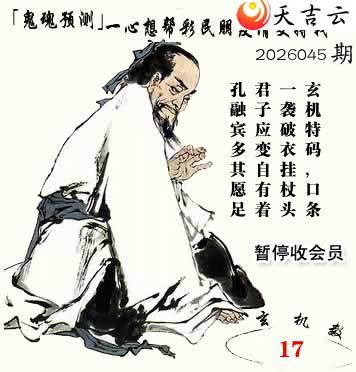 天吉云
「鬼魂预测」一心想帮彩民朋
2026045期
玄机特码，口条
一袭破衣挂杖头
君子应变自有着
孔融宾多其愿足
暂停收会员
玄机数
17